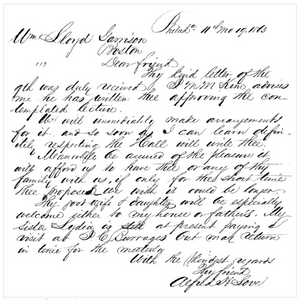 Philada 11th mo 19, 1863
Wm Lloyd Garrison
Boston
Dear friend
Thy kind letter of the
9th was duly received & J M McKim advises
me he has written thee approving the con-
templated lecture.
We will immediately make arrangements
for it and so soon as I can learn defin-
itely respecting the Hall will write thee.
Meanwhile be assured of the pleasure it
will afford us to have thee or any of thy
family with us, if only for the short time
thee proposes we wish it could be longer
Thy good wife & daughter will be especially
welcome either to my house or fathers. My
Sister Lydia is at present paying a
visit at Burrages but may return
in time for the meeting
With the kindest regards
Thy friend
Alfred H Love